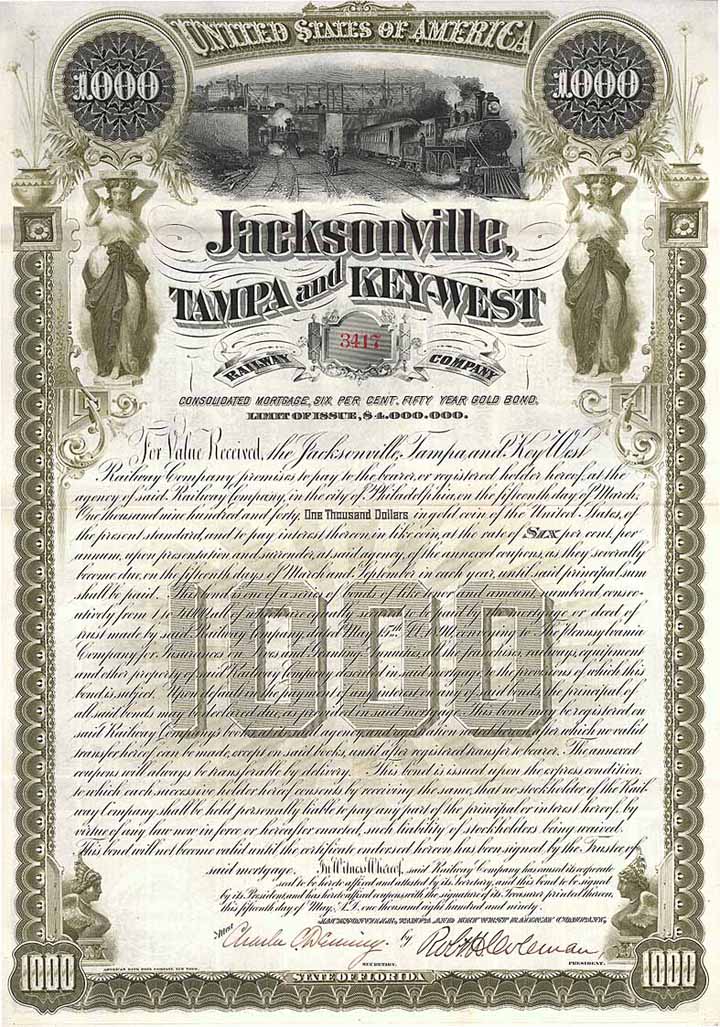 UNITED STATES OF AMERICA
1000 1000
Jacksonville,
TAMPA and KEY-WEST
3417
RAILWAY COMPANY
CONSOLIDATED MORTGAGE, SIX PER CENT. FIFTY YEAR GOLD BOND.
LIMIT OF ISSUE, $4.000.000.
For Value Received, the Jacksonville, Tampa, and Key West
Railway Company, promises to pay to the bearer, or registered holder hereof, at the
agency of said Railway Company, in the city of Philadelphia, on the fifteenth day of March,
One thousand nine hundred and forty, One Thousand Dollars in gold coin of the United States, of
the present standard, and to pay interest thereon in like coin, at the rate of SIX per cent. per
annum, upon presentation and surrender, at said agency, of the annexed coupons, as they severally
become due, on the fifteenth days of March and September in each year, until said principal sum
shall be paid. This bond is one of a series of bonds of like tenor and amount, numbered consec-
utively from 1 to and by a mortgage or deed of
trust made by said Railway Company, dated May 15th conveying to The Pennsylvania
Company for Insurances on Lives and Granting Annuities, all the franchises, railways, equipment
and other property of said Railway Company described in said mortgage, to the provisions of which
this bond is subject. Upon default in the payment of any interest on any of said bonds, the principal of
all said bonds may be declared due, as provided in said mortgage. This bond may be registered on
said Railway Company's books at said agency and after which no valid
transfer hereof can be made, except on said books, until after registered transfer to bearer. The annexed
coupons will always be transferable by delivery. This bond is issued upon the express condition,
to which each successive holder hereof consents by receiving the same, that no stockholder of the Rail-
way Company shall be held personally liable to pay any part of the principal or interest hereof, by
virtue of any law now in force or hereafter enacted, such liability of stockholders being waived.
This bond will not become valid until the certificate endorsed hereon has been signed by the Trustee of
said mortgage. In Witness Whereof, said Railway Company has caused its corporate
seal to be hereto affixed and attested by its Secretary, and this bond to be signed
by its President, and has hereto affixed coupons with the signature of its Treasurer printed thereon,
this fifteenth day of May, A.D. one thousand eight hundred and ninety.
JACKSONVILLE, TAMPA AND KEY WEST RAILWAY COMPANY,
Attest Charles C. Deming by Robt H. Coleman
SECRETARY. PRESIDENT.
AMERICAN BANK NOTE COMPANY, NEW YORK.
1000 STATE OF FLORIDA 1000
1000